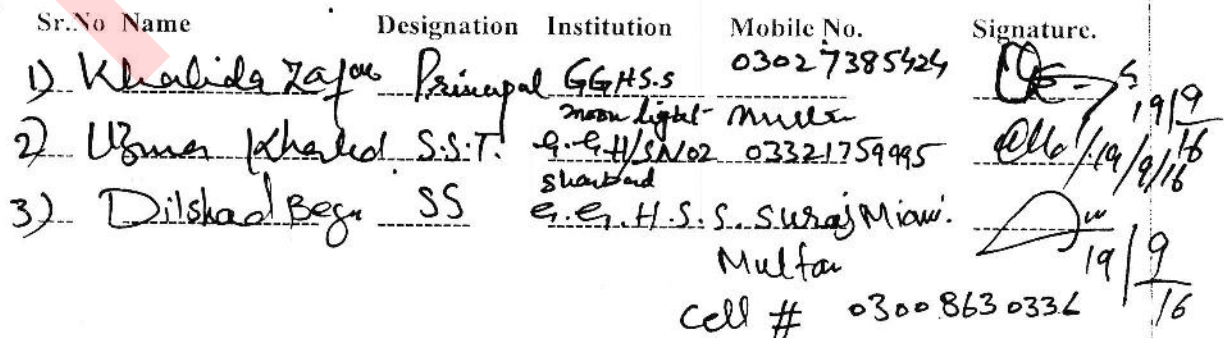 Sr.No Name Designation Institution Mobile No. Signature.
1) Khalida Zafar Principal GGHS.S 03027385424
moon light Multan 19/9/16
2) Uzma Khalid S.S.T. G.G.H/SNo2 03321759995 19/9/16
3) Dilshad Begu SS G.G.H.S.S. Suraj Miani.
Multan 19/9/16
Cell # 03008630336